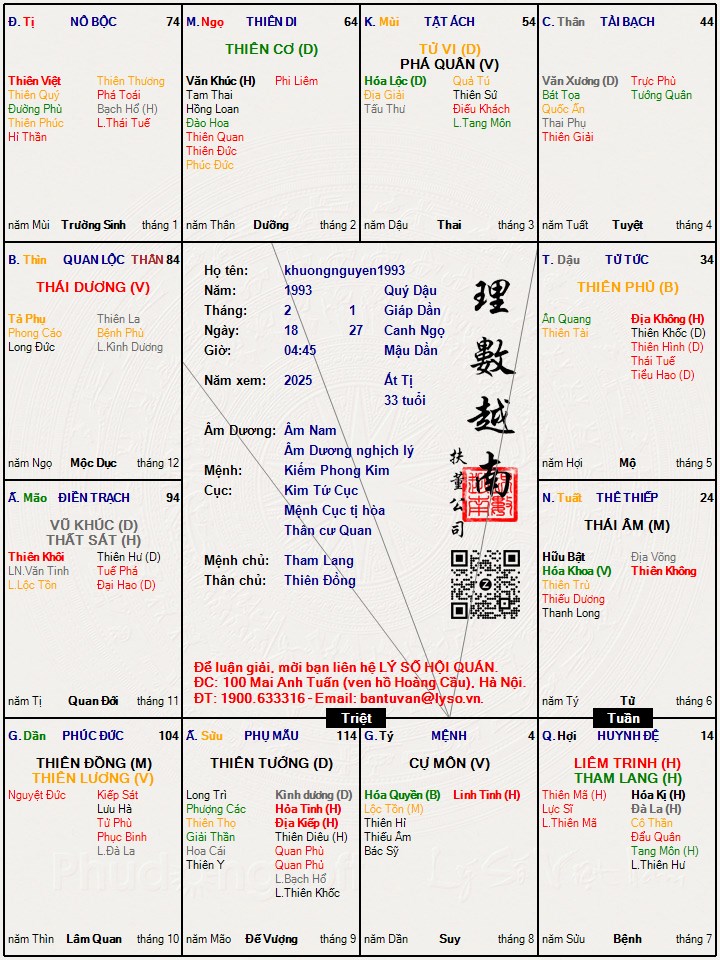 Đ. Tị NÔ BỘC 74
THIÊN VIỆT
Thiên Việt Thiên Thương
Thiên Quý Phá Toái
Đường Phù Bạch Hổ (H)
Thiên Phúc L.Thái Tuế
Hỉ Thần
năm Mùi Trường Sinh tháng 1
M. Ngọ THIÊN DI 64
THIÊN CƠ (D)
Văn Khúc (H) Phi Liêm
Tam Thai
Hồng Loan
Đào Hoa
Thiên Quan
Thiên Đức
Phúc Đức
năm Thân Dưỡng tháng 2
K. Mùi TẬT ÁCH 54
TỬ VI (D)
PHÁ QUÂN (V)
Hóa Lộc (D) Quả Tú
Địa Giải Thiên Sứ
Tấu Thư Điếu Khách
L.Tang Môn
năm Dậu Thai tháng 3
C. Thân TÀI BẠCH 44
Văn Xương (D) Trực Phù
Bát Tọa Tướng Quân
Quốc Ấn
Thai Phụ
Thiên Giải
năm Tuất Tuyệt tháng 4
B. Thìn QUAN LỘC THÂN 84
THÁI DƯƠNG (V)
Tả Phụ Thiên La
Phong Cáo Bệnh Phù
Long Đức L.Kình Dương
năm Ngọ Mộc Dục tháng 12
Họ tên: khuongnguyen1993
Năm: 1993 Quý Dậu
Tháng: 2 1 Giáp Dần
Ngày: 18 27 Canh Ngọ
Giờ: 04:45 Mậu Dần
Năm xem: 2025 Ất Tị
33 tuổi
Âm Dương: Âm Nam
Âm Dương nghịch lý
Mệnh: Kiếm Phong Kim
Cục: Kim Tứ Cục
Mệnh Cục tị hòa
Thân cư Quan
Mệnh chủ: Tham Lang
Thân chủ: Thiên Đồng
理數越南
扶董公司
Để luận giải, mời bạn liên hệ LÝ SỐ HỘI QUÁN.
ĐC: 100 Mai Anh Tuấn (ven hồ Hoàng Cầu), Hà Nội.
ĐT: 1900.633316 - Email: bantuvan@lyso.vn.
T. Dậu TỬ TỨC 34
THIÊN PHỦ (B)
Ân Quang Địa Không (H)
Thiên Tài Thiên Khốc (D)
Thiên Hình (D)
Thái Tuế
Tiểu Hao (D)
năm Hợi Mộ tháng 5
Ấ. Mão ĐIỀN TRẠCH 94
VŨ KHÚC (D)
THẤT SÁT (H)
Thiên Khôi Thiên Hư (D)
LN.Văn Tinh Tuế Phá
L.Lộc Tồn Đại Hao (D)
năm Tị Quan Đới tháng 11
N. Tuất THÊ THIẾP 24
THÁI ÂM (M)
Hữu Bật Địa Võng
Hóa Khoa (V) Thiên Không
Thiên Trù
Thiếu Dương
Thanh Long
năm Tý Tử tháng 6
Triệt
Tuần
G. Dần PHÚC ĐỨC 104
THIÊN ĐỒNG (M)
THIÊN LƯƠNG (V)
Nguyệt Đức Kiếp Sát
Lưu Hà
Tử Phù
Phục Binh
L.Đà La
năm Thìn Lâm Quan tháng 10
Ấ. Sửu PHỤ MẪU 114
THIÊN TƯỚNG (D)
Long Trì Kình dương (D)
Phượng Các Hỏa Tinh (H)
Thiên Thọ Địa Kiếp (H)
Giải Thần Thiên Diêu (H)
Hoa Cái Quan Phù
Thiên Y Quan Phủ
L.Bạch Hổ
L.Thiên Khốc
năm Mão Đế Vượng tháng 9
G. Tý MỆNH 4
CỰ MÔN (V)
Hóa Quyền (B) Linh Tinh (H)
Lộc Tồn (M)
Thiên Hỉ
Thiếu Âm
Bác Sỹ
năm Dần Suy tháng 8
Q. Hợi HUYNH ĐỆ 14
LIÊM TRINH (H)
THAM LANG (H)
Thiên Mã (H) Hóa Kị (H)
Lực Sĩ Đà La (H)
L.Thiên Mã Cô Thần
Đẩu Quân
Tang Môn (H)
L.Thiên Hư
năm Sửu Bệnh tháng 7